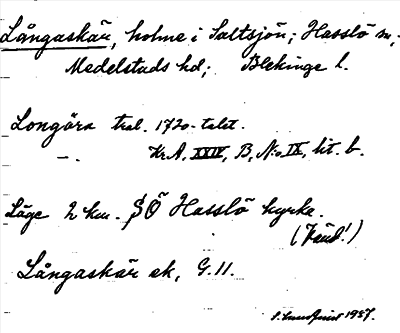 Långaskär, holme i Saltsjön; Hasslö sn;
Medelstads hd; Blekinge l.
Longöra trol. 1720-talet.
—"— Kr.A. XXIV, B, N:o IX, lit. b.
Läge 2 km. SÖ Hasslö kyrka.
(Vänd!)
Långaskär ek, G.11.
1957.